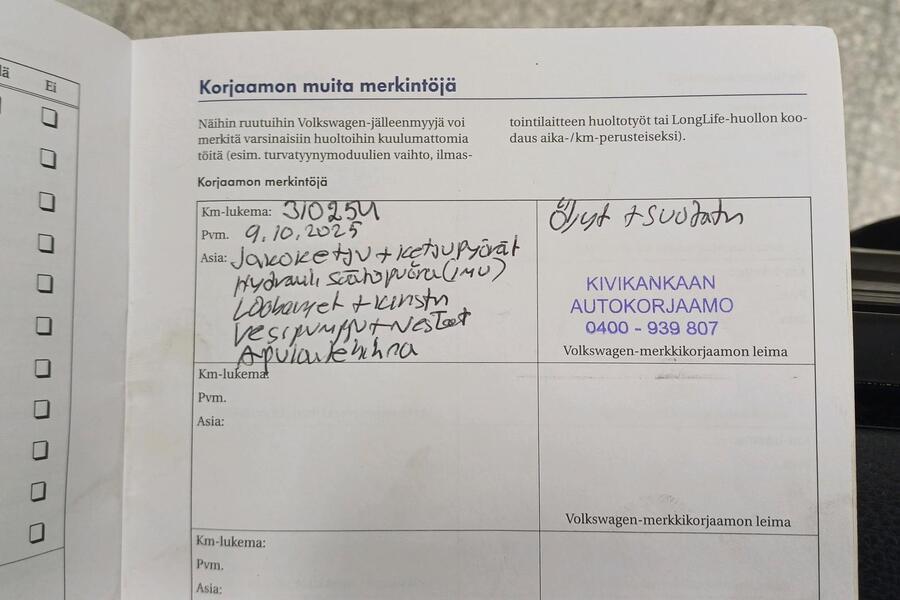 lä
Ei
Korjaamon muita merkintöjä
Näihin ruutuihin Volkswagen-jälleenmyyjä voi
merkitä varsinaisiin huoltoihin kuulumattomia
töitä (esim. turvatyynymoduulien vaihto, ilmas-
tointilaitteen huoltotyöt tai LongLife-huollon koo-
daus aika-/km-perusteiseksi).
Korjaamon merkintöjä
Km-lukema: 310254
Pvm. 9.10.2025
Asia: Jakoketju + ketjupyörät
Hydrauli säätöpyörä (IMU)
Liukukiskot + kiristin
Vesipumppu + Nesteet
Apulaitehihna
Öljyt + suodatin
KIVIKANKAAN
AUTOKORJAAMO
0400 - 939 807
Volkswagen-merkkikorjaamon leima
Km-lukema:
Pvm.
Asia:
Volkswagen-merkkikorjaamon leima
Km-lukema:
Pvm.
Asia: